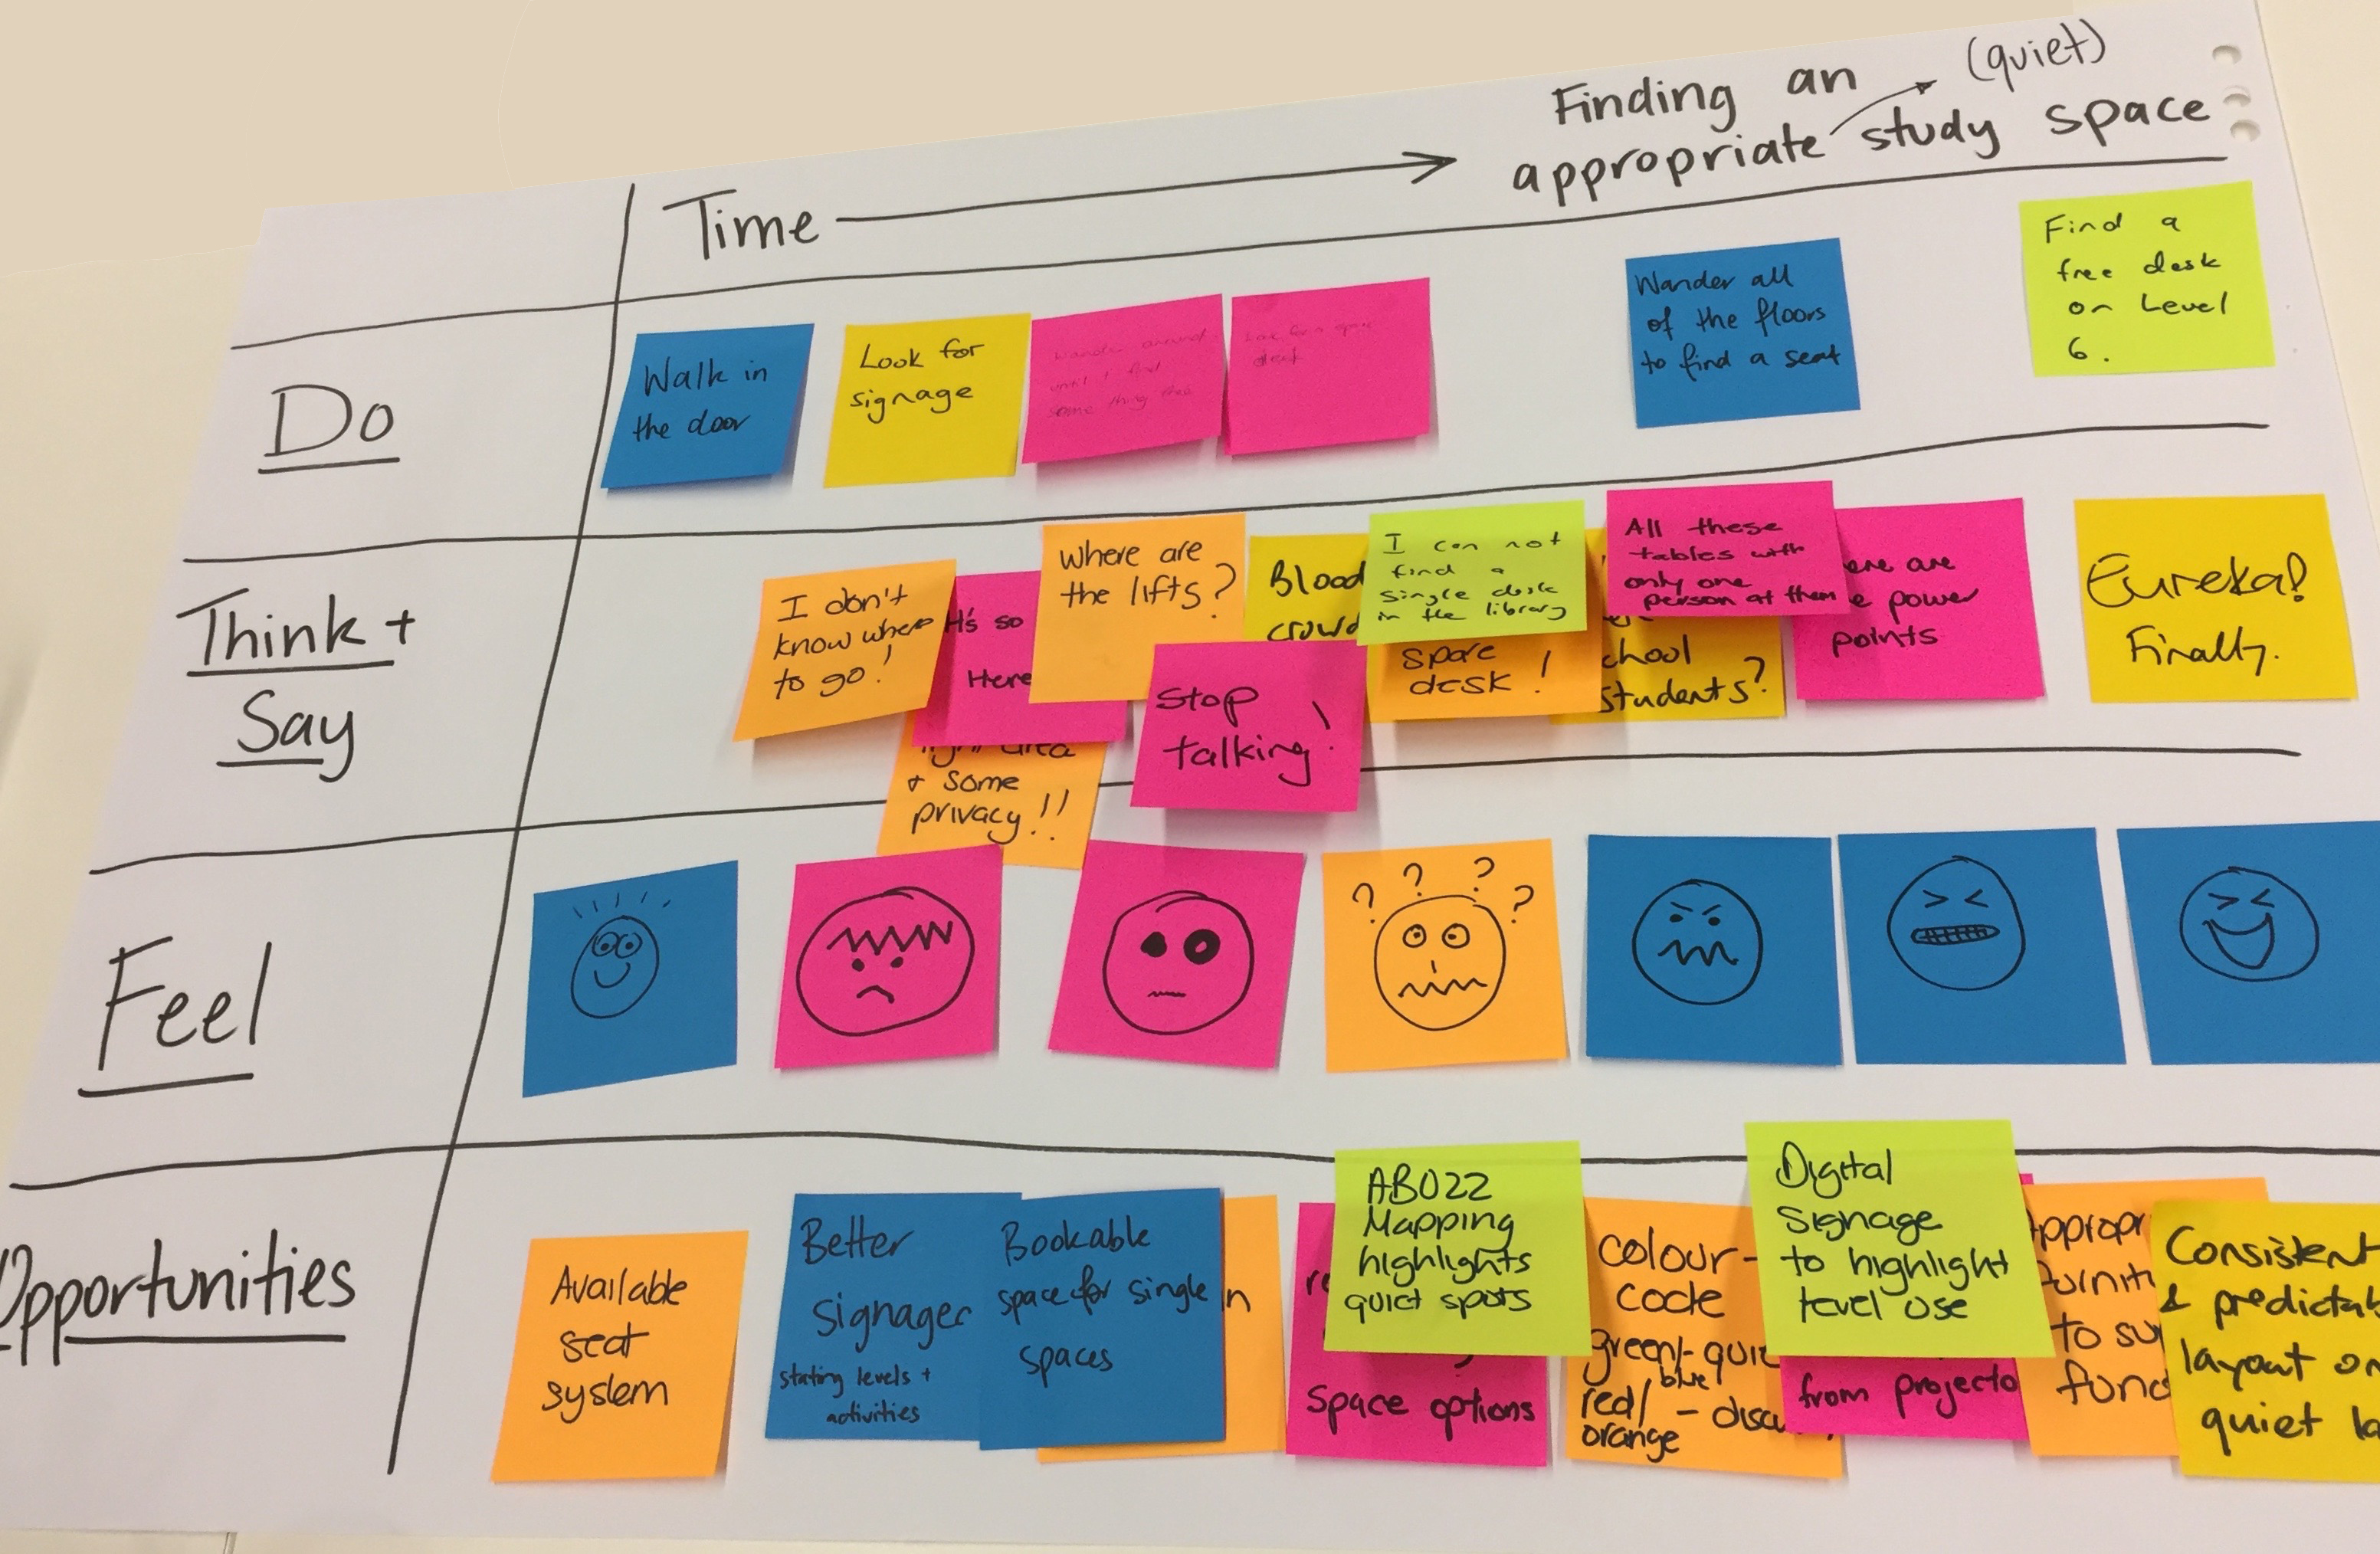 (quiet)
Finding an
appropriate study space
Time
Do
Walk in
the door
Look for
signage
Wander around
until I find
some thing free
Look for a spare
desk
Wander all
of the floors
to find a seat
Find a
free desk
on Level
6.
Think +
Say
I don't
know where
to go!
It's so
Here
+ some
privacy!!
Where are
the lifts?
Stop
talking!
I can not
find a
single desk
in the library
spare
desk!
students?
All these
tables with
only one
person at them
are
power
points
Eureka!
Finally.
Feel
? ? ? ?
Opportunities
Available
seat
system
Better
signage
stating levels +
activities
Bookable
space for single
spaces
AB022
Mapping
highlights
quiet spots
space options
Colour-
code
green/-
blue
red/ -
orange
Digital
signage
to highlight
level use
from
to
Consistent
&
layout
quiet